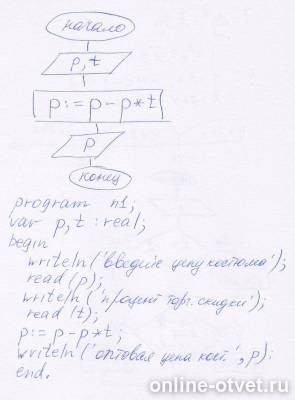 начало
p, t
p:= p-p*t
p
конец
program n1;
var p,t : real;
begin
writeln('введите цену костюма');
read (p);
writeln ('процент торг. скидки');
read (t);
p:= p-p*t;
writeln('оптовая цена кост.', p);
end.
online-otvet.ru